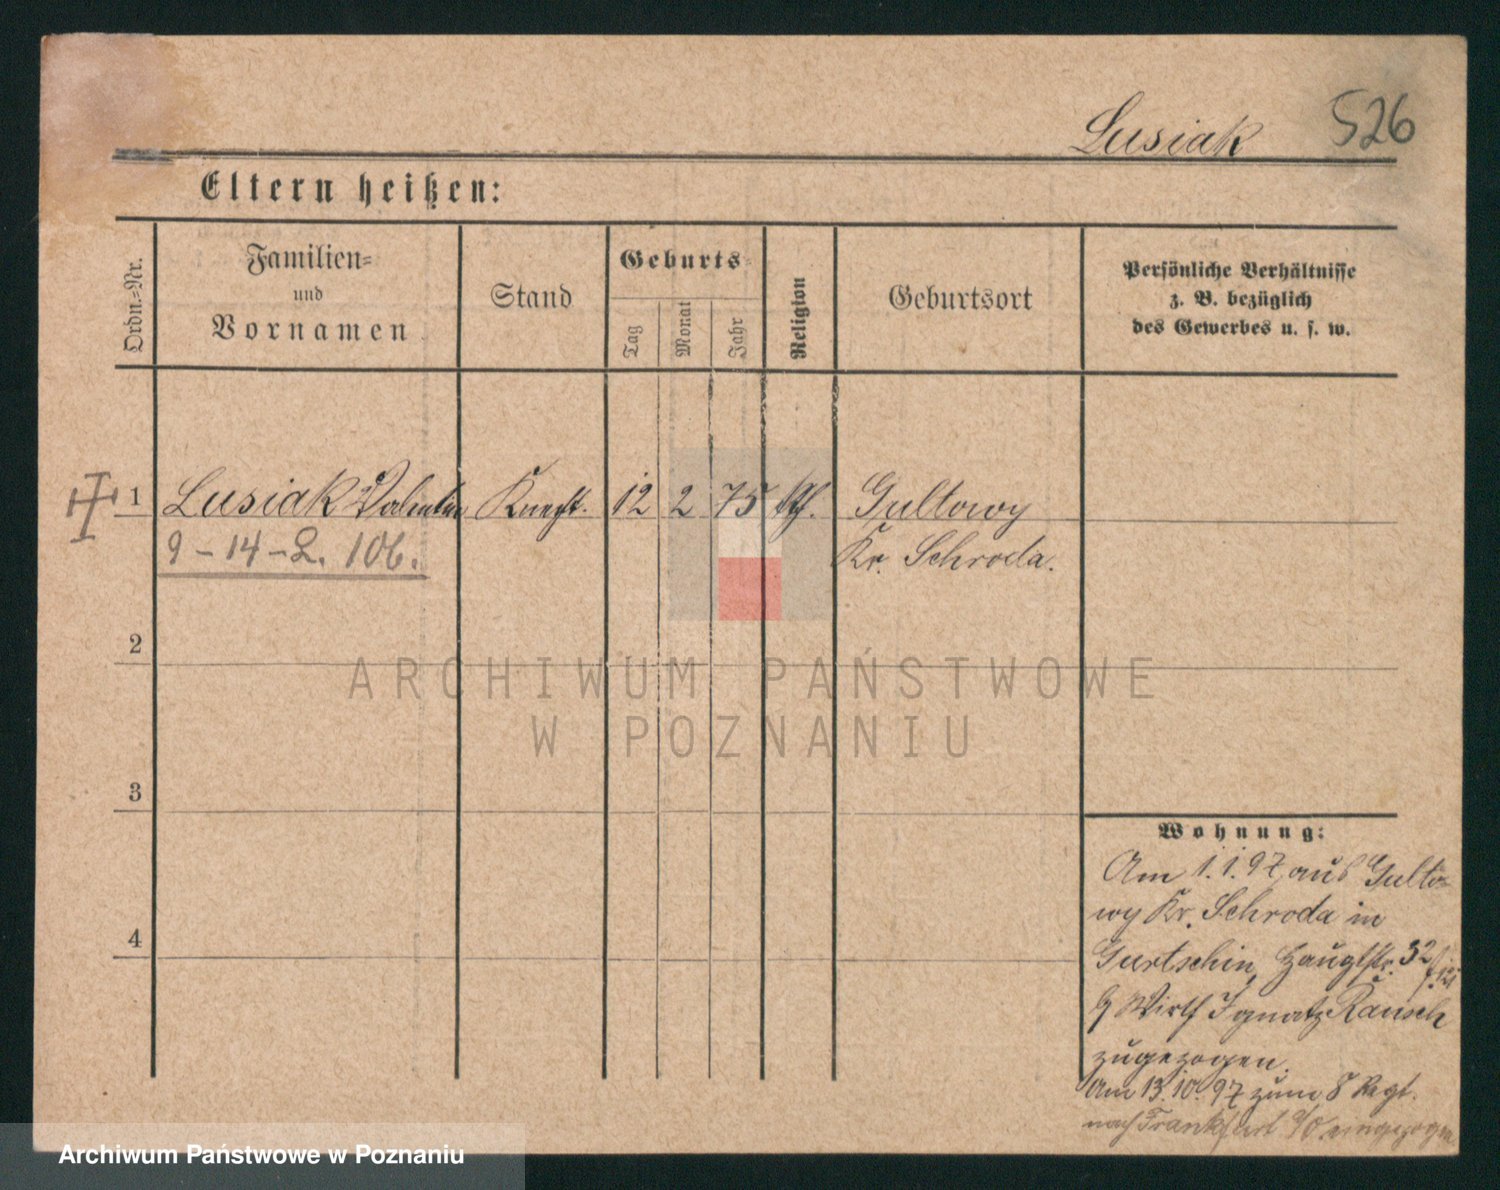 Lusiak 526
Eltern heißen:
Ordn.=Nr.
Familien=
und
Vornamen
Stand
Geburts=
Tag
Monat
Jahr
Religion
Geburtsort
Persönliche Verhältnisse
z. B. bezüglich
des Gewerbes u. s. w.
1 Lusiak Valentin Knecht. 12 2 75 Gultowy
9 - 14 - 2. 106. Kr. Schroda.
2
ARCHIWUM PAŃSTWOWE
W POZNANIU
3
Wohnung:
Am 1.1.97 aus Gulto=
wy Kr. Schroda in
Gurtschin, Hauptstr. 32
Wirth Ignatz Rausch
zugezogen.
4
Am 13.10.97 zum 8 Regt.
nach Frankfurt a/O eingezogen
Archiwum Państwowe w Poznaniu